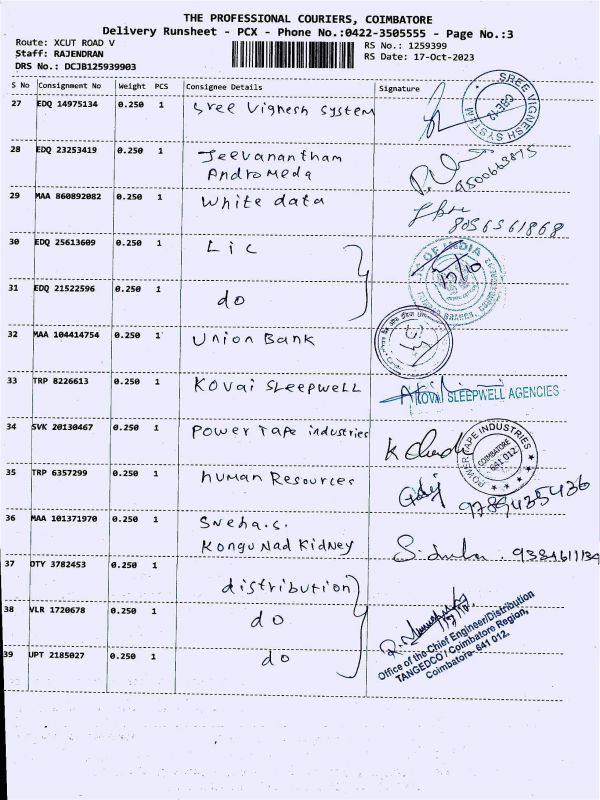 THE PROFESSIONAL COURIERS, COIMBATORE
Delivery Runsheet - PCX - Phone No.:0422-3505555 - Page No.:3
Route: XCUT ROAD V
Staff: RAJENDRAN
DRS No.: DCJB125939903
RS No.: 1259399
RS Date: 17-Oct-2023
S No Consignment No Weight PCS Consignee Details Signature
27 EDQ 14975134 0.250 1 Sree Vignesh System
SREE VIGNESH SYSTEM
CBE-12
28 EDQ 23253419 0.250 1 Jeevanantham
Andromeda
9500663875
29 MAA 860892082 0.250 1 White data
8056561868
30 EDQ 25613609 0.250 1 Lic
OF INDIA
17/10
31 EDQ 21522596 0.250 1 do
32 MAA 104414754 0.250 1 Union Bank
33 TRP 8226613 0.250 1 Kovai Sleepwell
KOVAI SLEEPWELL AGENCIES
34 SVK 20130467 0.250 1 Power Tape industries
POWER TAPE INDUSTRIES
COIMBATORE
641 012
35 TRP 6357299 0.250 1 human Resources
9789435436
36 MAA 101371970 0.250 1 Sneha.S.
Kongu Nad Kidney
9384611134
37 OTY 3782453 0.250 1 distribution
38 VLR 1720678 0.250 1 do
39 UPT 2185027 0.250 1 do
Office of the Chief Engineer/Distribution
TANGEDCO / Coimbatore Region,
Coimbatore- 641 012.